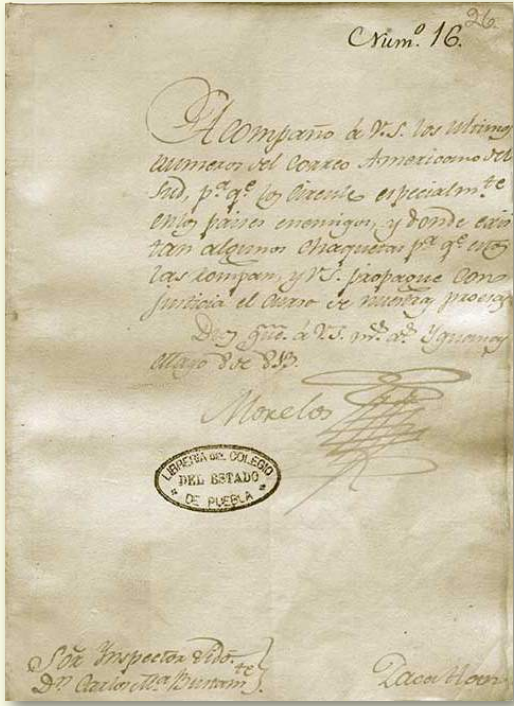 26.
Num.º 16.
Acompaño á V.S. los ultimos
numeros del Correo Americano del
Sud, p.ª q.e los circule especialm.te
en los paises enemigos, y donde exis
tan algunos chaquetas p.ª q.e estos
las rompan, y V.S. propague con
justicia el curso de nuestras proezas
Dios gũe. á V.S. m.s a.s
Mayo 8 de 813.
Morelos
LIBRERIA DEL COLEGIO
DEL ESTADO
DE PUEBLA
Sõr Inspector
D.n Carlos M.ª Bustam.te